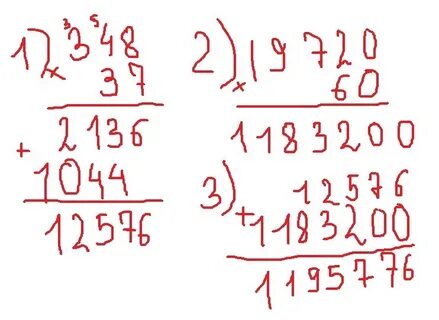 1) ³3⁵48
× 37
2136
+
1044
12576
2) × 19720
60
1183200
3) 12576
+ 1183200
1195776